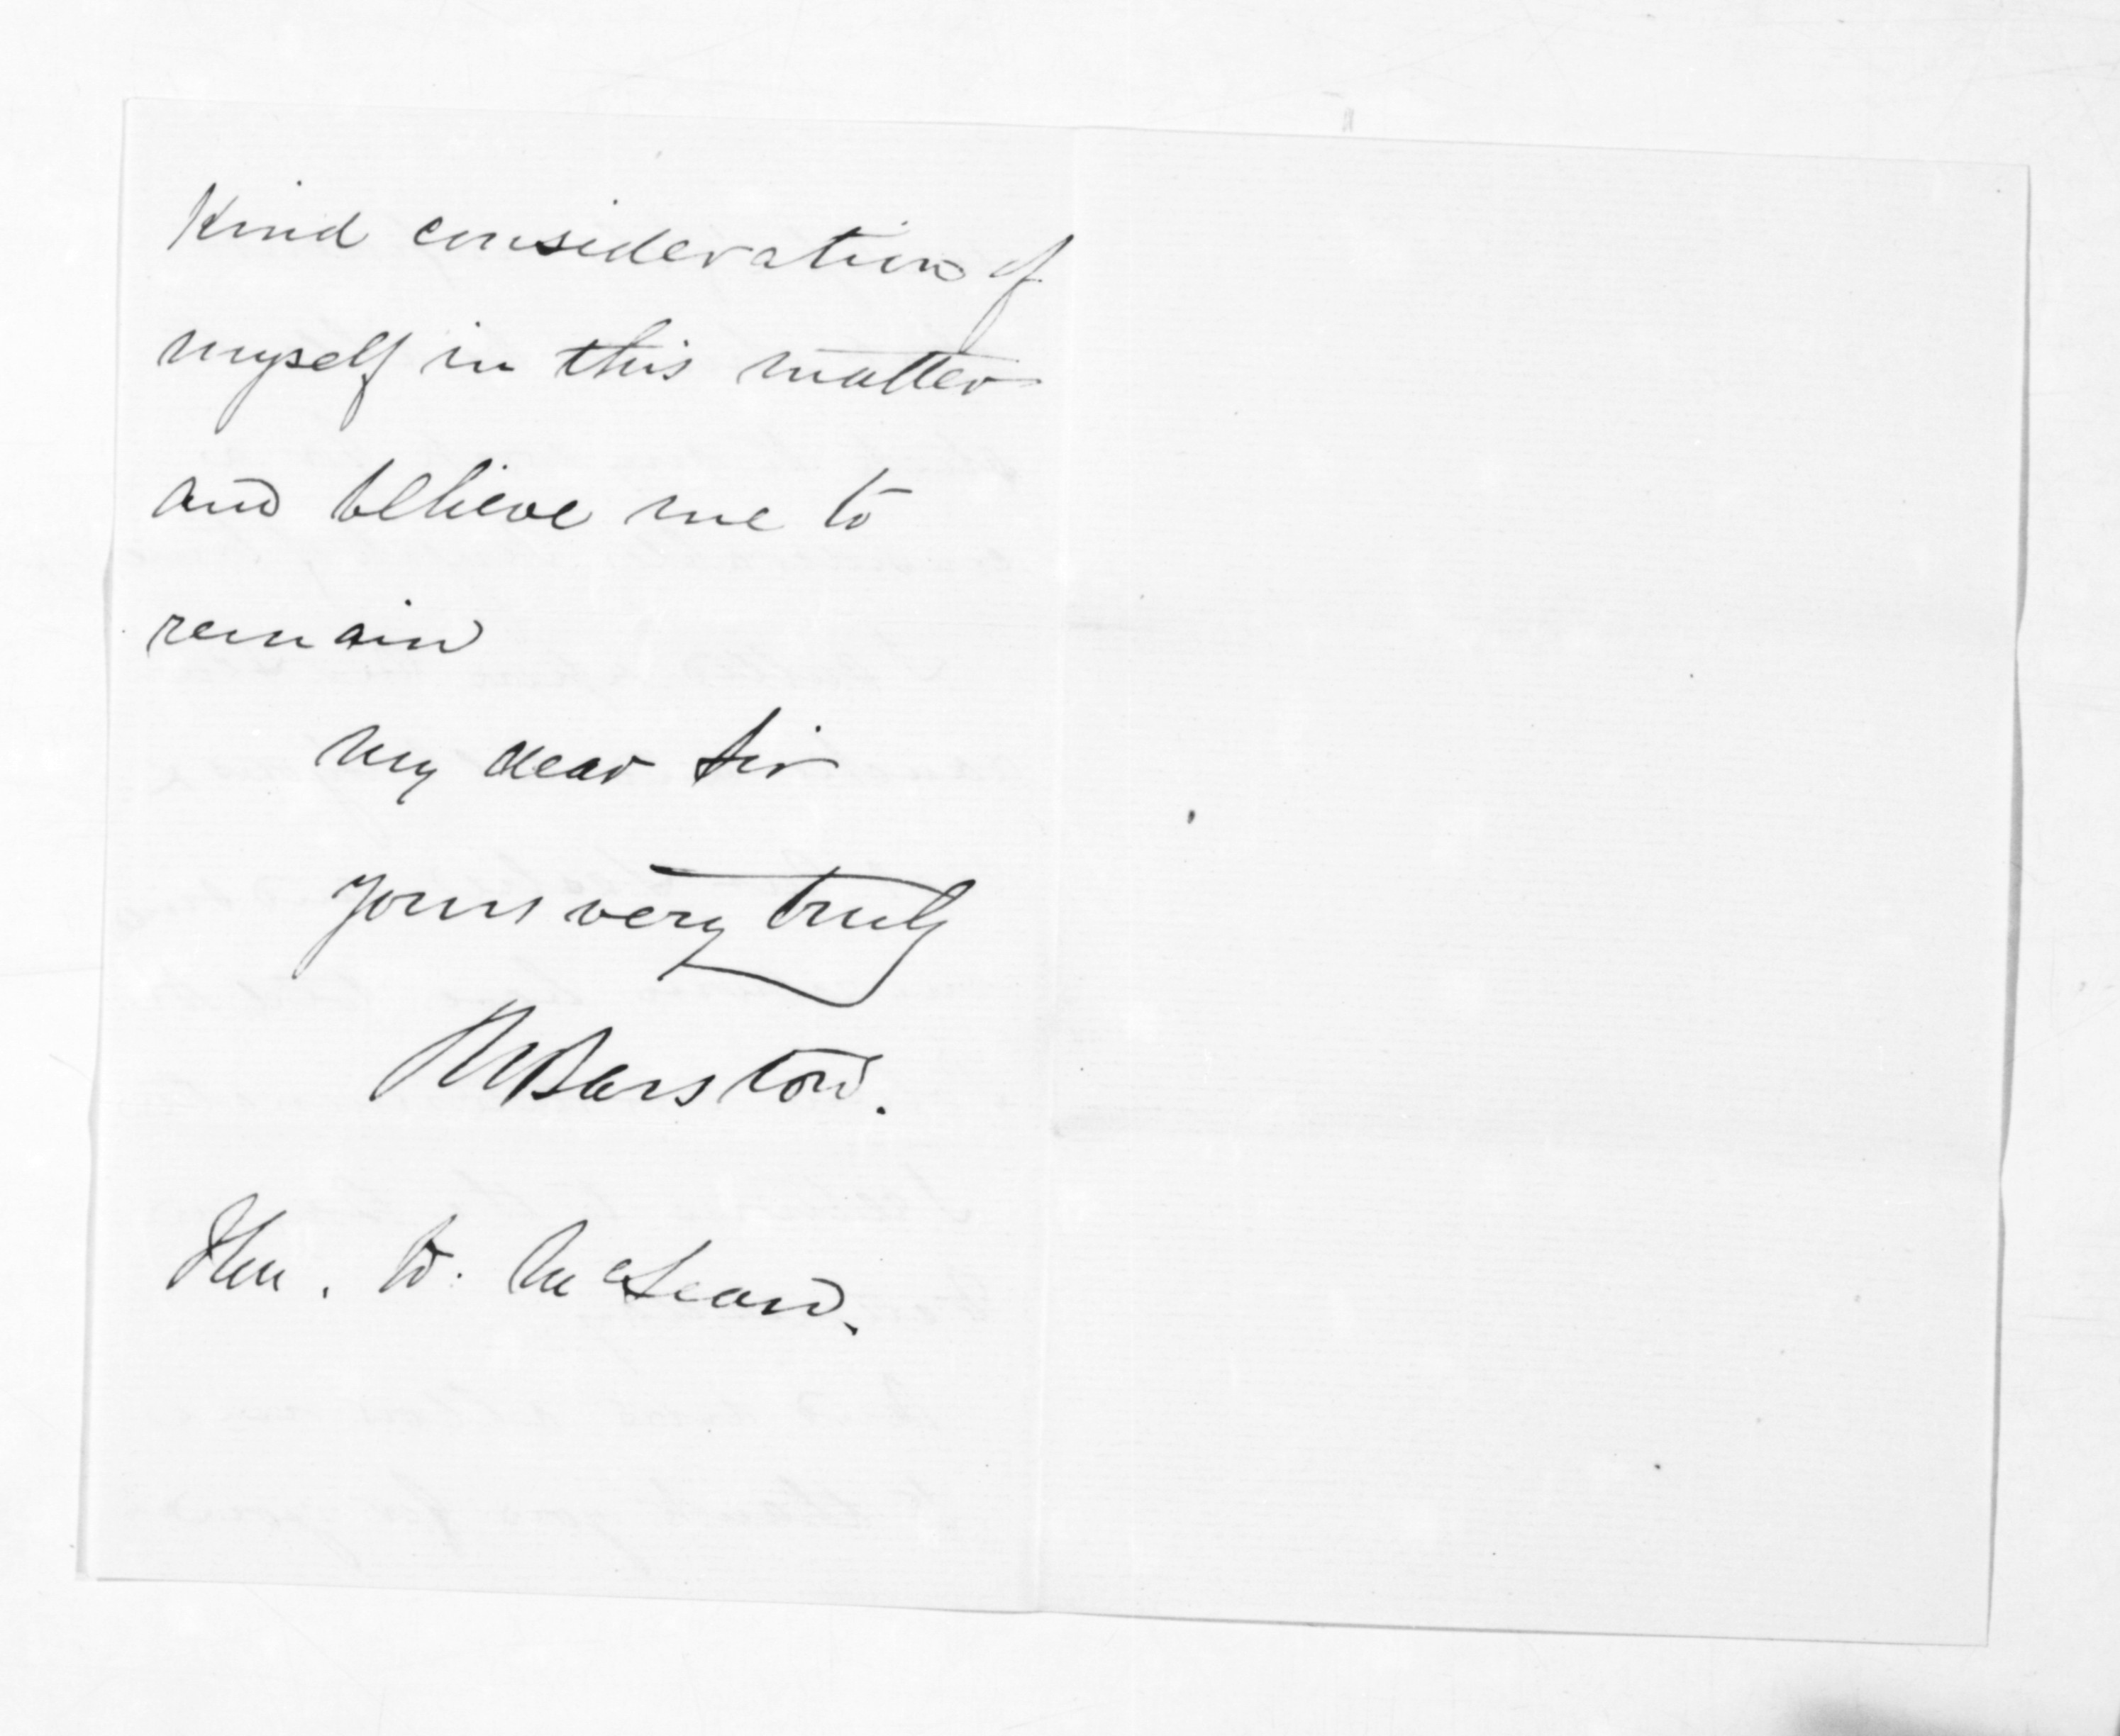 Kind consideration of
myself in this matter
and believe me to
remain
my dear Sir
yours very truly
Barstow.
Hon. D. McLean.